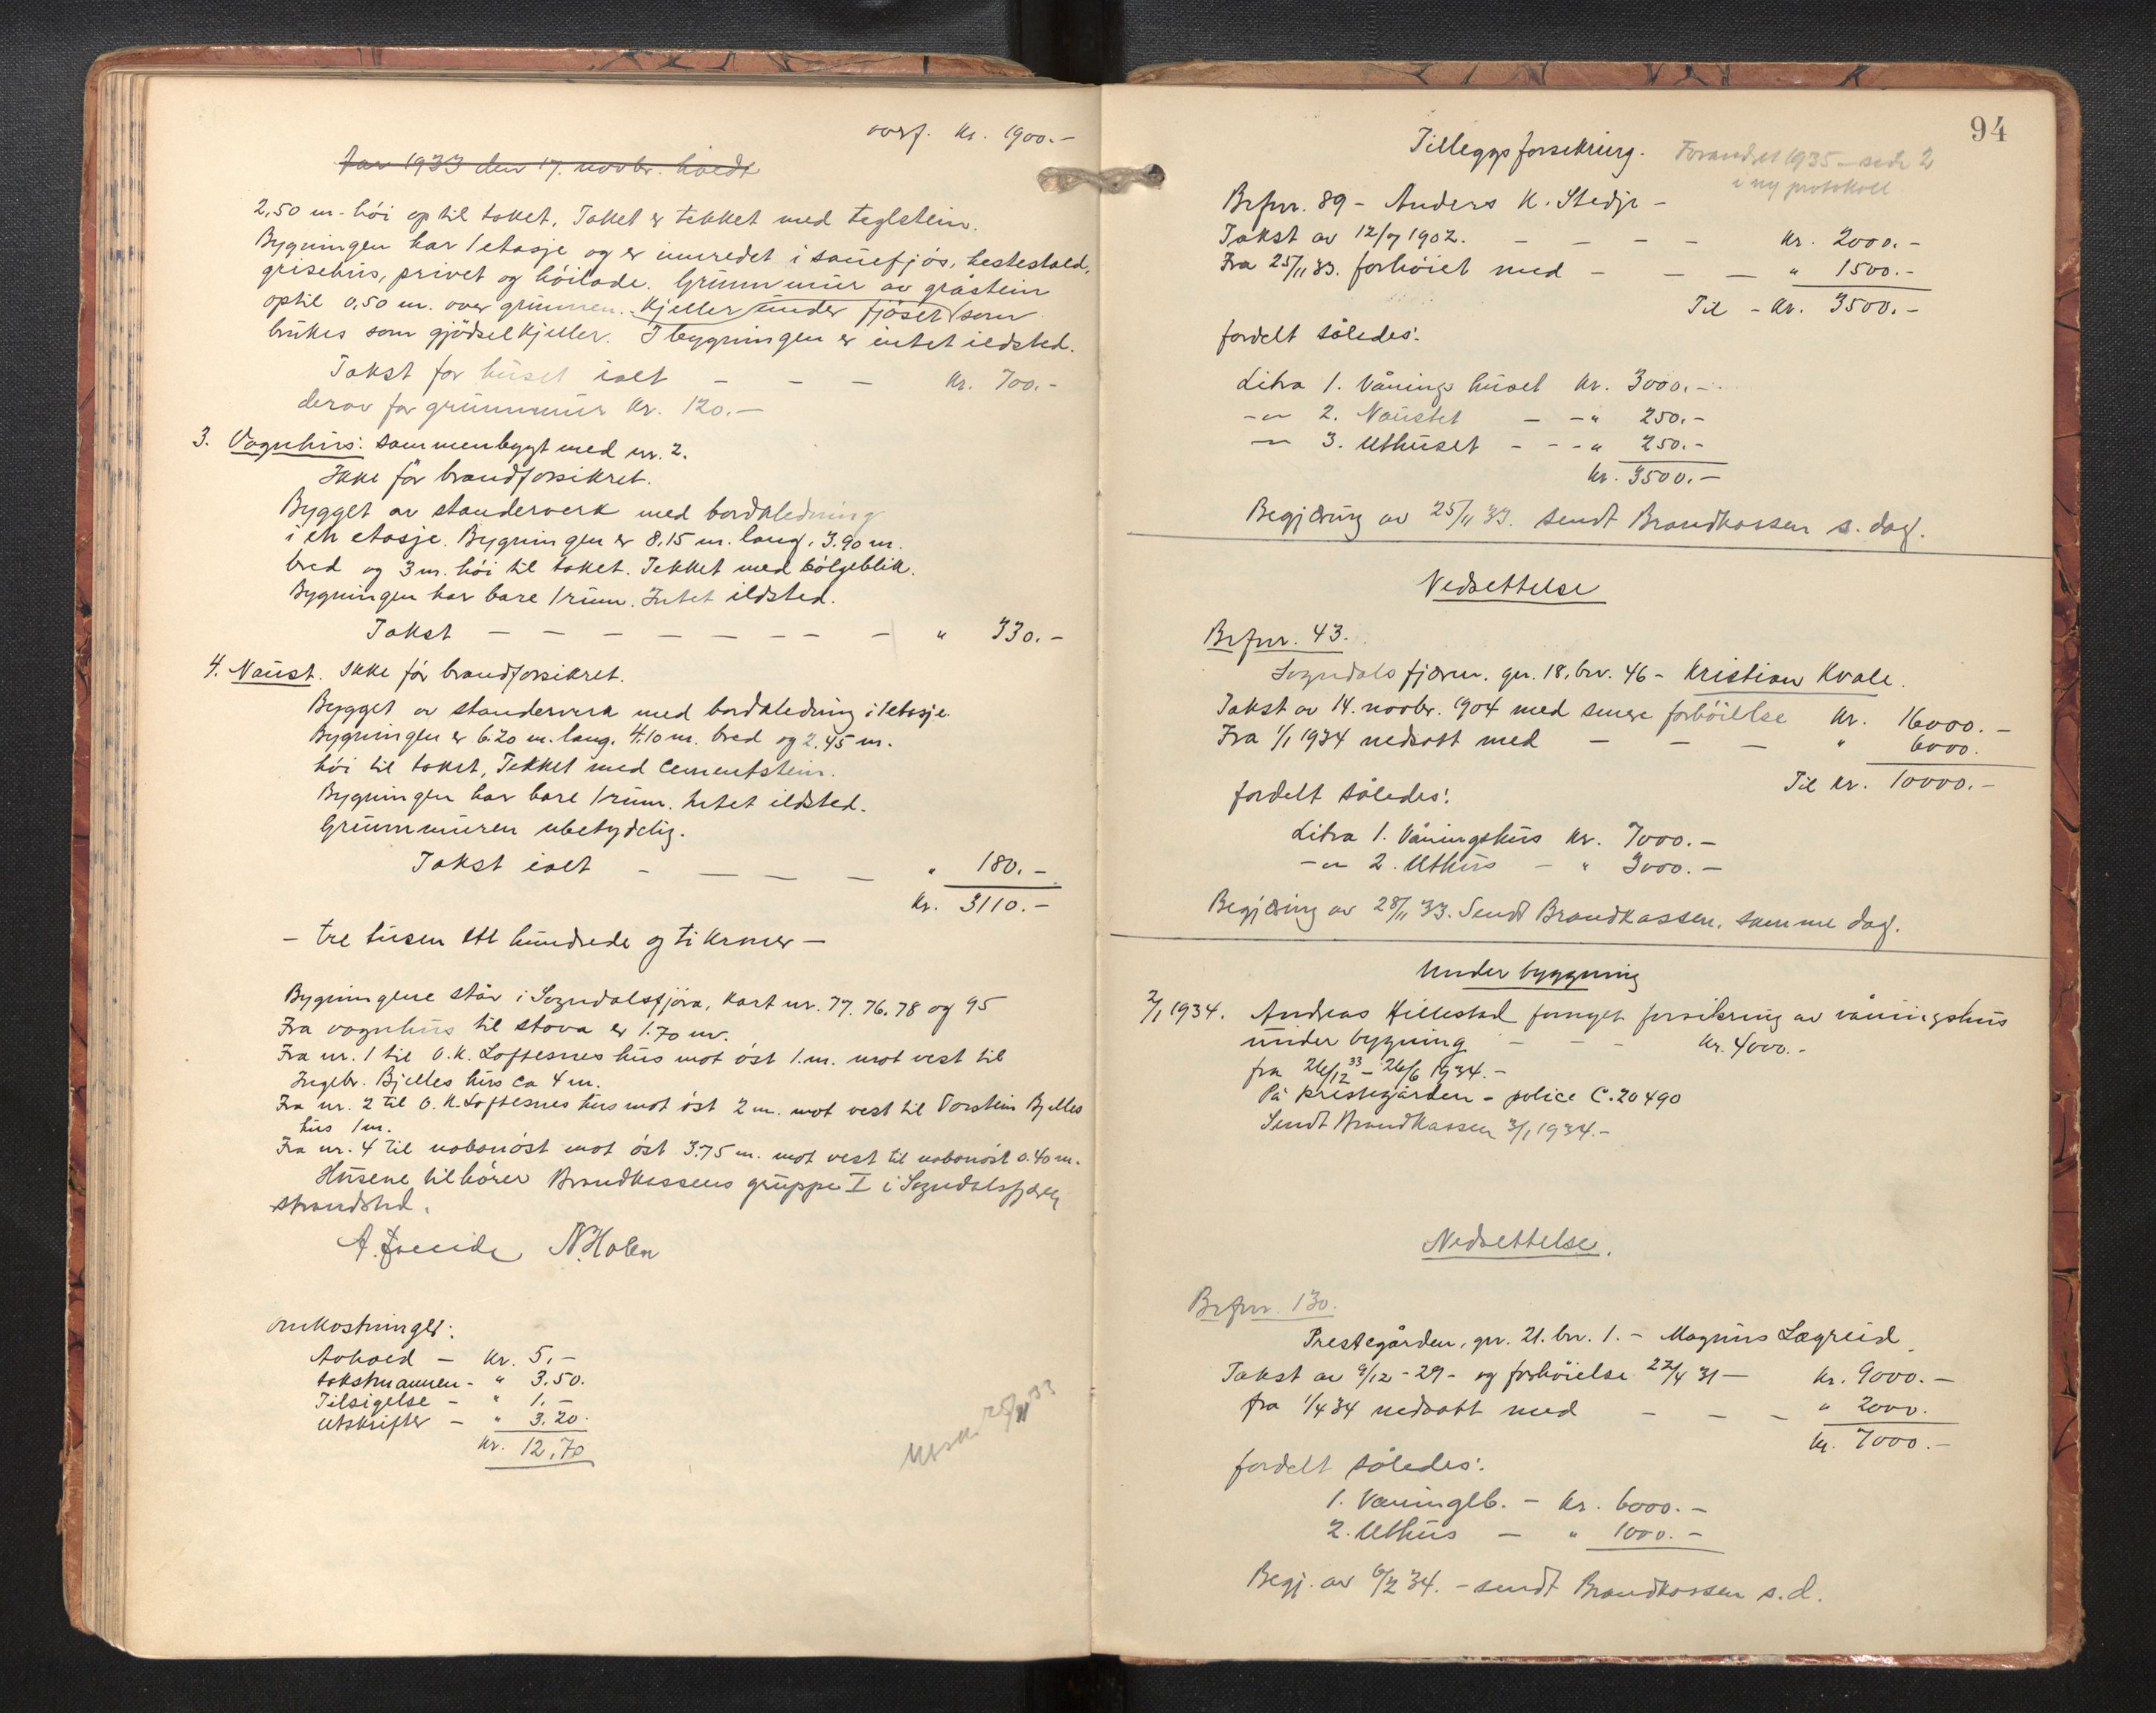 overf. Kr. 1900.-
Aar 1933 den 17. novbr. holdt
2,50 m. höi op til taket. Taket er tekket med teglstein.
Bygningen har 1 etasje og er innredet i sauefjös, hestestald,
grisehus, privet og höilade. Grunnmur av gråstein
optil 0,50 m. over grunnen. Kjeller under fjöset som
brukes som gjödselkjeller. I bygningen er intet ildsted.
Takst for huset ialt - - - Kr. 700.-
derav for grunnmur Kr. 120.-
3. Vognhus: sammenbygt med nr. 2.
Ikke för brandforsikret.
Bygget av standerverk med bordkledning
i en etasje. Bygningen er 8,15 m. lang, 3.90 m.
bred og 3 m. höi til taket. Tekket med bölgeblik.
Bygningen har bare 1 rum. Intet ildsted.
Takst - - - - - - - - - " 330.-
4. Naust. Ikke för brandforsikret.
Bygget av standerverk med bordkledning i 1 etasje.
Bygningen er 6.20 m. lang, 4,10 m. bred og 2,45 m.
höi til taket, Tekket med Cementstein.
Bygningen har bare 1 rum. Intet ildsted.
Grunnmuren ubetydelig.
Takst ialt - - - - " 180.-
Kr. 3110.-
- tre tusen ett hundrede og ti kroner -
Bygningene står i Sogndalsfjöra, Kart nr. 77. 76. 78 og 95
Fra vognhus til stova er 1.70 m.
Fra nr. 1 til O.K. Loftesnes hus mot öst 1. m. mot vest til
Ingebr. Bjelles hus ca 4 m.
Fra nr. 2 til O.K. Loftesnes hus mot öst 2 m. mot vest til Torstein Bjelles
hus 1 m.
Fra nr. 4 til nabonöst mot öst 3.75 m. mot vest til nabonöst 0.40 m.
Husene tilhörer Brandkassens gruppe I i Sogndalsfjæren
strandsted.
A. N. Holen
Omkostninger:
Avhold - Kr. 5.-
takstmannen - " 3.50.
Tilsigelse - " 1.-
Utskrifter - " 3.20.
Kr. 12,70
25/11 33
94
Tilleggsforsikring.
Forandret 1935 - side 2
i ny protokoll
Brfnr. 89 - Anders K. Stedje -
Takst av 12/7 1902. - - - - Kr. 2000.-
Fra 25/11 33. forhöiet med - - - " 1500.-
Til - Kr. 3500.-
fordelt således:
Litra 1. Vånings huset Kr. 3000.-
-"- 2. Naustet - -" 250.-
-"- 3. Uthuset - - -" 250.-
Kr. 3500.-
Begjæring av 25/11 33. sendt Brandkassen s. dag.
Nedsettelse
Brfnr. 43.
Sogndalsfjæren. gnr. 18, bnr. 46 - Kristian Kvale.
Takst av 14. novbr. 1904 med senere forhöielse Kr. 16000.-
Fra 1/1 1934 nedsatt med - - - " 6000.
Til kr. 10000.-
fordelt således:
Litra 1. Våningshus Kr. 7000.-
-"- 2. Uthus - " 3000.-
Begjæring av 28/11 33. Sendt Brandkassen, samme dag.
Under byggning
2/1 1934. Andreas Hillestad fornyet forsikring av våningshus
under bygning - - - Kr. 4000.-
fra 26/12 33 - 26/6 1934.-
På Prestegården - police C.20490
Sendt Brandkassen 3/1 1934.-
Nedsettelse.
Brfnr. 130.
Prestegården, gnr. 21. bnr. 1. - Magnus Lægreid
Takst av 9/12 - 29 - og forhöielse 22/4 31 - Kr. 9000.-
fra 1/4 34 nedsatt med - - - " 2000.
Kr. 7000.-
fordelt således:
1. Vaaningsb. - Kr. 6000.-
2. Uthus - " 1000.-
Begj. av 6/2 34. - sendt Brandkassen s.d.